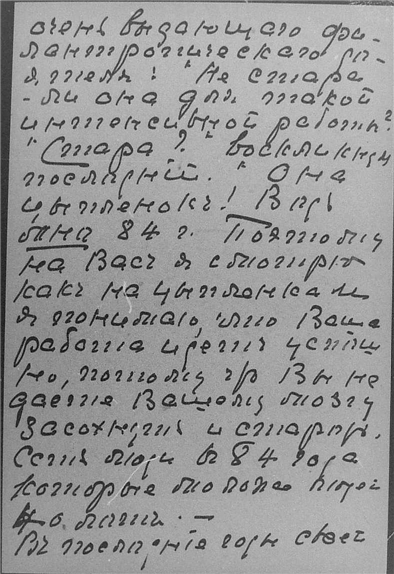 очень выдающаго фи-
лантропическаго дѣ-
ятеля: "Не стара
-ли она для такой
интенсивной работы?"
"Стара?" воскликнул
послѣдній. "Она
цыпленокъ! Ведь
84 г. Поэтому
на Васъ я смотрю
какъ на цыпленка и
я понимаю, что Ваша
работа идетъ успѣш
но, потому что Вы не
даете Вашему мозгу
засохнуть и старѣть.
Есть люди въ 84 года
которые моложе людей
40 лѣтн. —
Въ послѣдніе годы